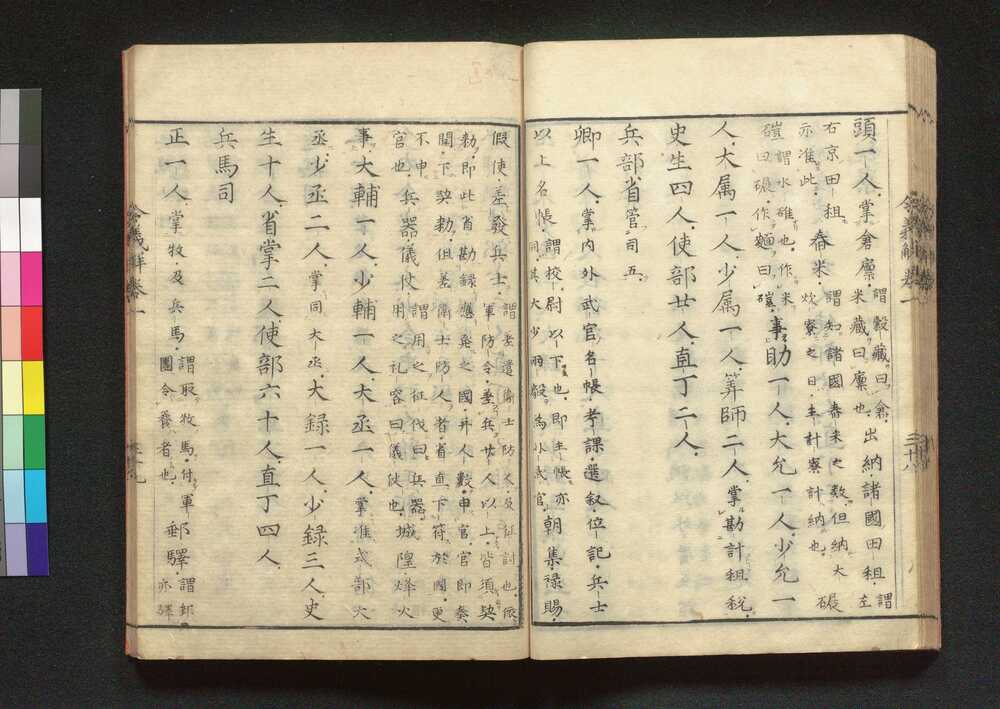 頭一人掌倉廩謂穀藏曰倉米藏曰廩也出納諸國田租謂左
右京田租亦准此舂米謂知諸國舂米之数但納大炊寮之日主計寮計納也碾
磑謂水碓也作米曰碾作麺曰磑事助一人大允一人少允一
人大属一人少属一人筭師二人掌勘計租税
史生四人使部廿人直丁二人
兵部省管司五
卿一人掌内外武官名帳考課選叙位記兵士
以上名帳謂校尉以下也即年帳亦同其大少兩毅為外武官朝集禄賜
假使差發兵士謂差遣衛士防人及征討也依軍防令差兵廿人以上皆須契
勅即此省勘録應発之國并人數申官官即奏聞下契勅但差衛士防人者省直下符於國更
不申官也兵器儀仗謂用之征伐曰兵器用之礼容曰儀仗也城隍烽火
事大輔一人少輔一人大丞一人掌准式部大
丞少丞二人掌同大丞大録一人少録三人史
生十人省掌二人使部六十人直丁四人
兵馬司
正一人掌牧及兵馬謂取牧馬付軍團令養者也郵驛謂郵亦驛
令義解卷一
三十八
令義解卷一